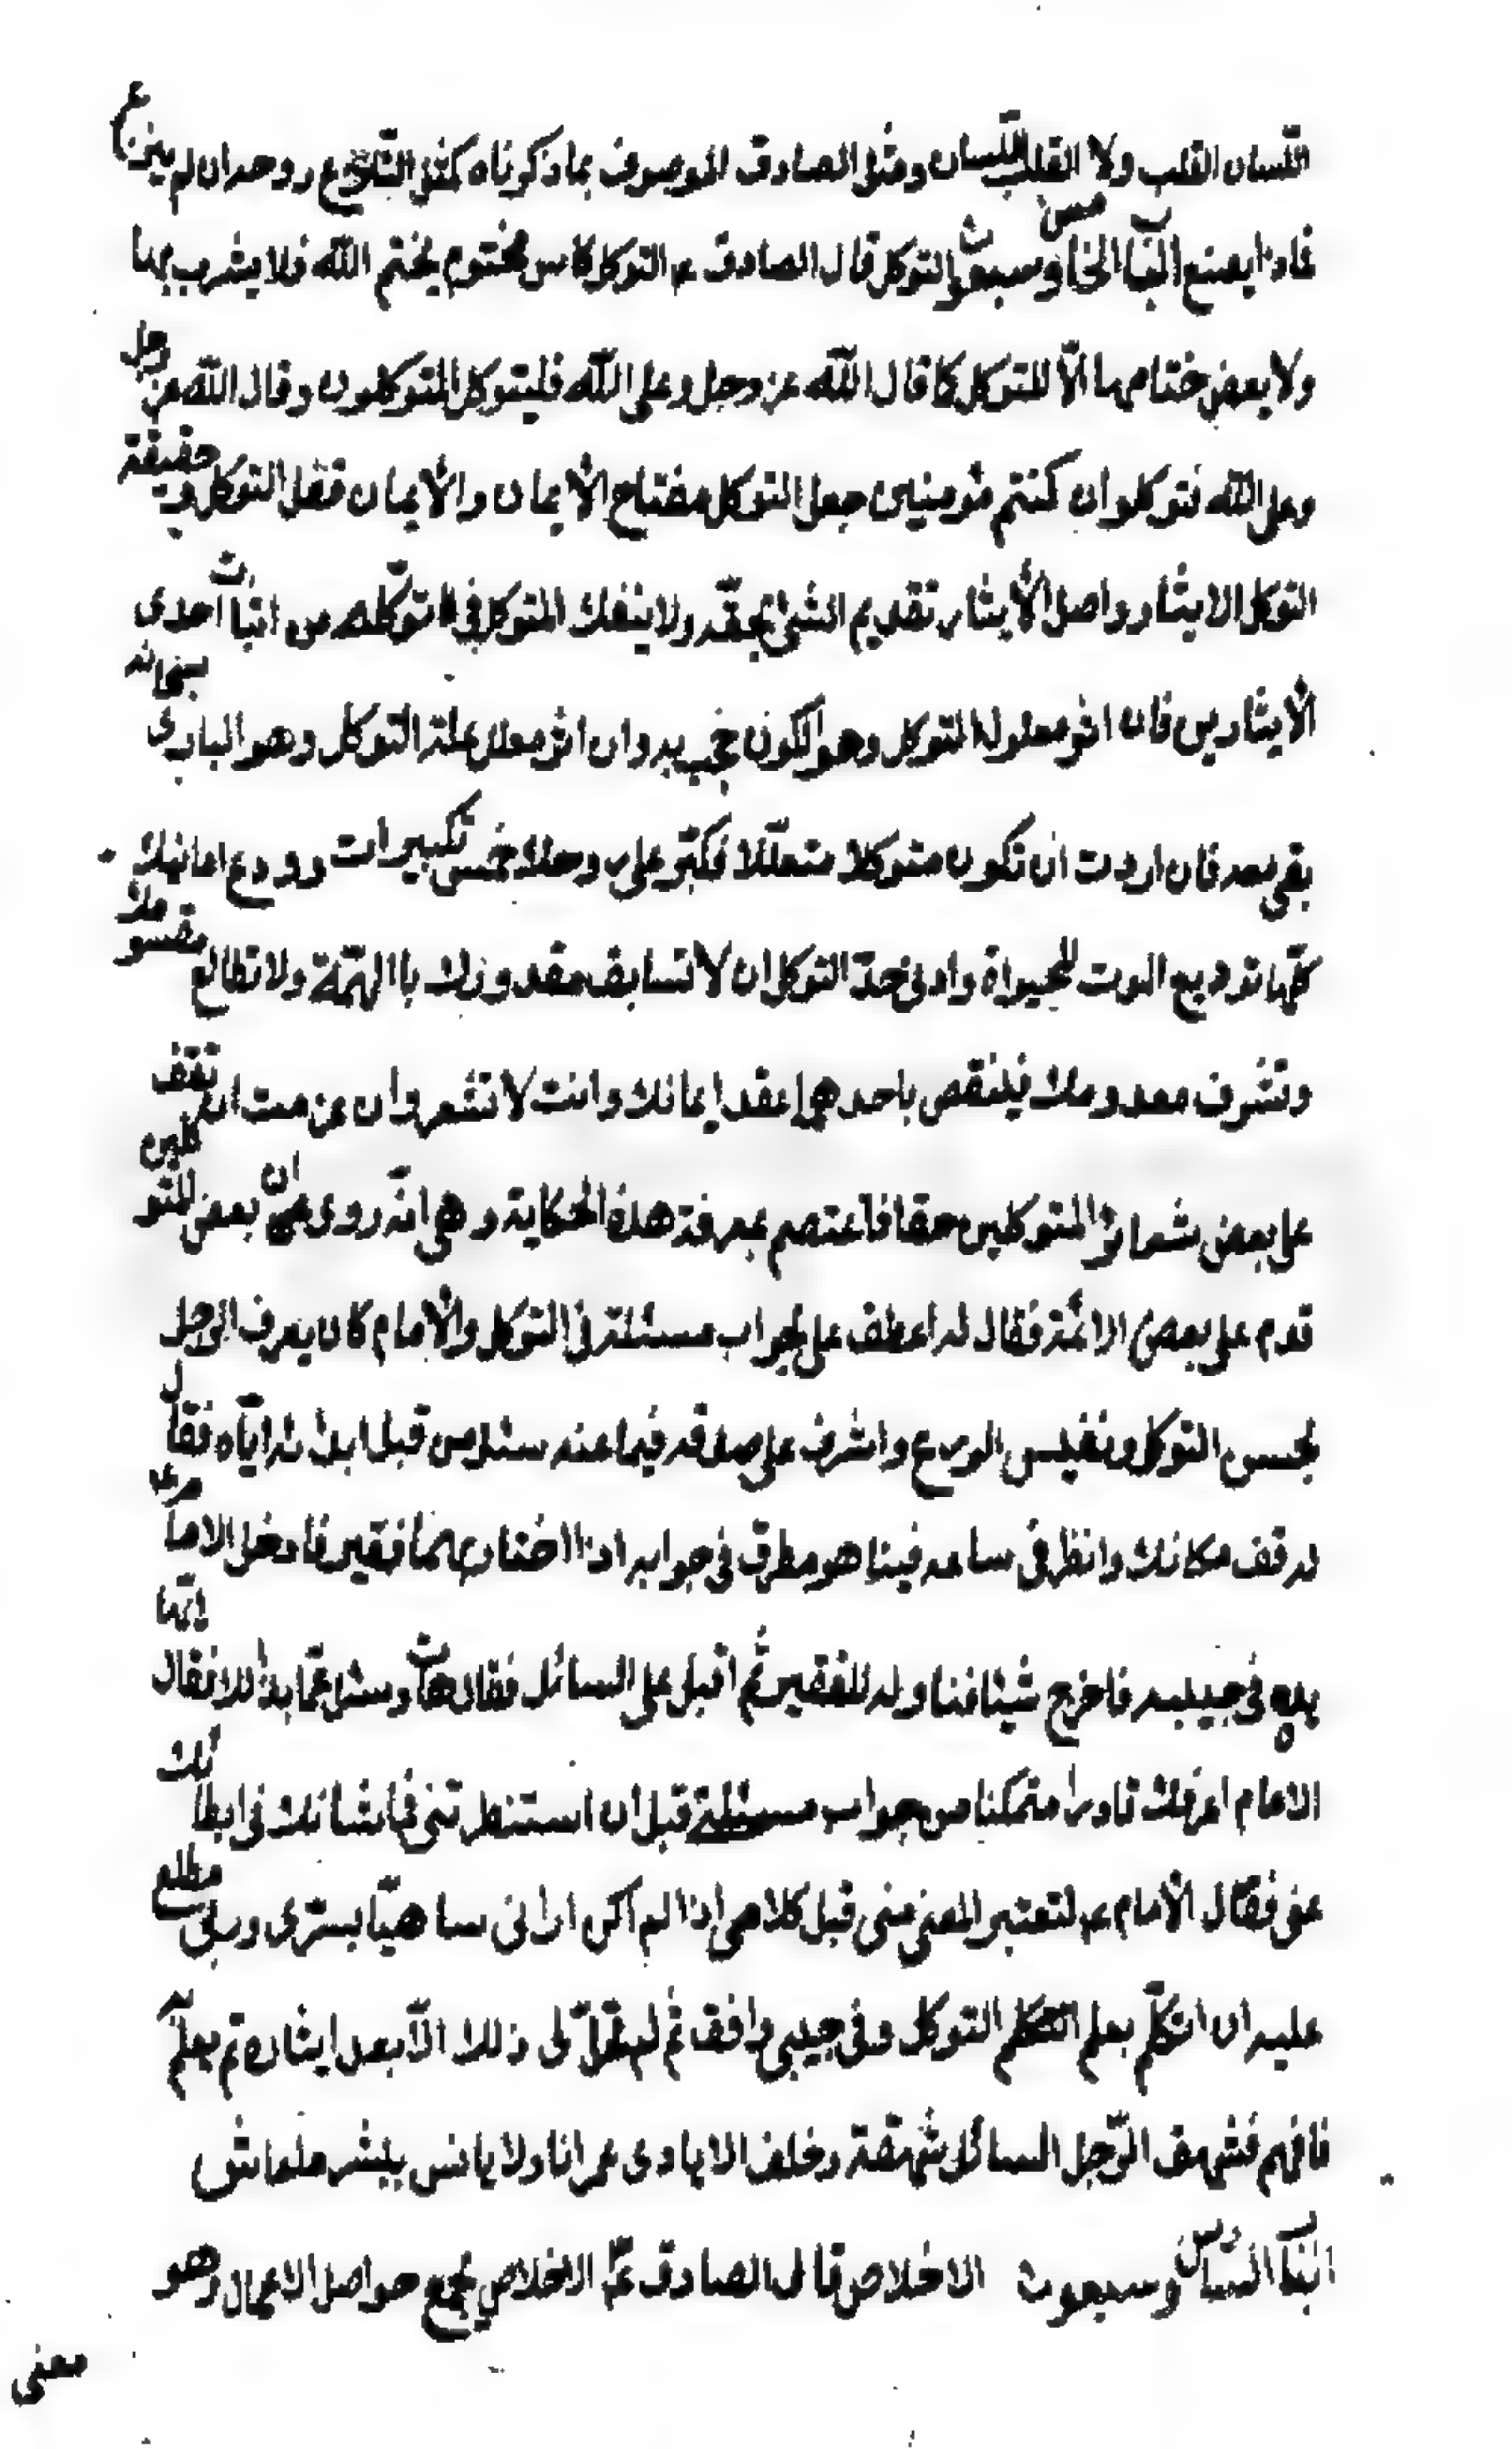 اللسان القلب ولا القلب اللسان ومثل الصادق الموصوف بما ذكرناه كمثل النازع روحه ان لم ينزع
فماذا يصنع الباب الخامس وسبعون التوكل قال الصادق ع التوكل كاس مختوم بختم الله فلا يشرب بها
ولا يفض ختامها الّا المتوكل كما قال الله عز وجل وعلى الله فليتوكل المتوكلون وقال الله عز وجل
وعلى الله فتوكلوا ان كنتم مؤمنين جعل التوكل مفتاح الأيمان والأيمان قفل التوكل وحقيقة
التوكل الايثار واصل الأيثار تقديم الشئ بحقّه ولا ينفك المتوكل في توكّله من اثبات احدى
الأيثارين فان اثر معلول التوكل وهو الكون حجب به وان اثر معلل علة التوكل وهو البارى سبحانه
بقى معه فان اردت ان تكون متوكلا متعلّلا فكبّر على روحك خمس تكبيرات وودع امانيك
كلّها توديع الموت للحيواة وادنى حدّ التوكل ان لا تسابق مقدورك باالهمّة ولا تطالع مقسومك
وتشرف معدومك فينتقص باحدهما عقد ايمانك وانت لا تشعر وان عزمت ان تقف
على بعض شعائر المتوكلين حقا فاعتصم بمعرفة هذه الحكاية وهى انّه روى ان بعض المتوكلين
قدم على بعض الائمّة فقال له اعطف على بجواب مسئلة فى التوكل والأمام كان يعرف الرجل
بحسن التوكل ونفيس الورع واشرف على صدقه فيما عنه سئل من قبل ابدائه ايّاه فقال
له قف مكانك وانظرنى ساعه فبينا هو مطرق فى جوابه اذا اختار بهما فقير فادخل الامام
يده فى جيبه فاخرج شيئا فناوله للفقير ثم اقبل على السائل فقال هات وسئل عمّا بدا لك فقال
الامام اعرفك قادرا متمكنا من جواب مسئلة قبل ان استنظرتنى فما شانك فى ابطائك
عنى فقال الأمام ع لتعتبر المعنى منى قبل كلامى اذا لم اكن ارانى ساهيّا بسرّى وربى مطلع
عليه ان اتكلّم بعلم التوكل وفى جيبى دانق ثم لم يحلّ لى ذلك الّا بعد ايثاره ثم بعلم
فافهم فشهق الرّجل السائل شهقة وحلف الا ياوى عمرانا ولا يانس ببشر ما عاش
الباب السادس وسبعون الاخلاص قال الصادق ع الاخلاص يجمع حواصل الاعمال وهو
معنى